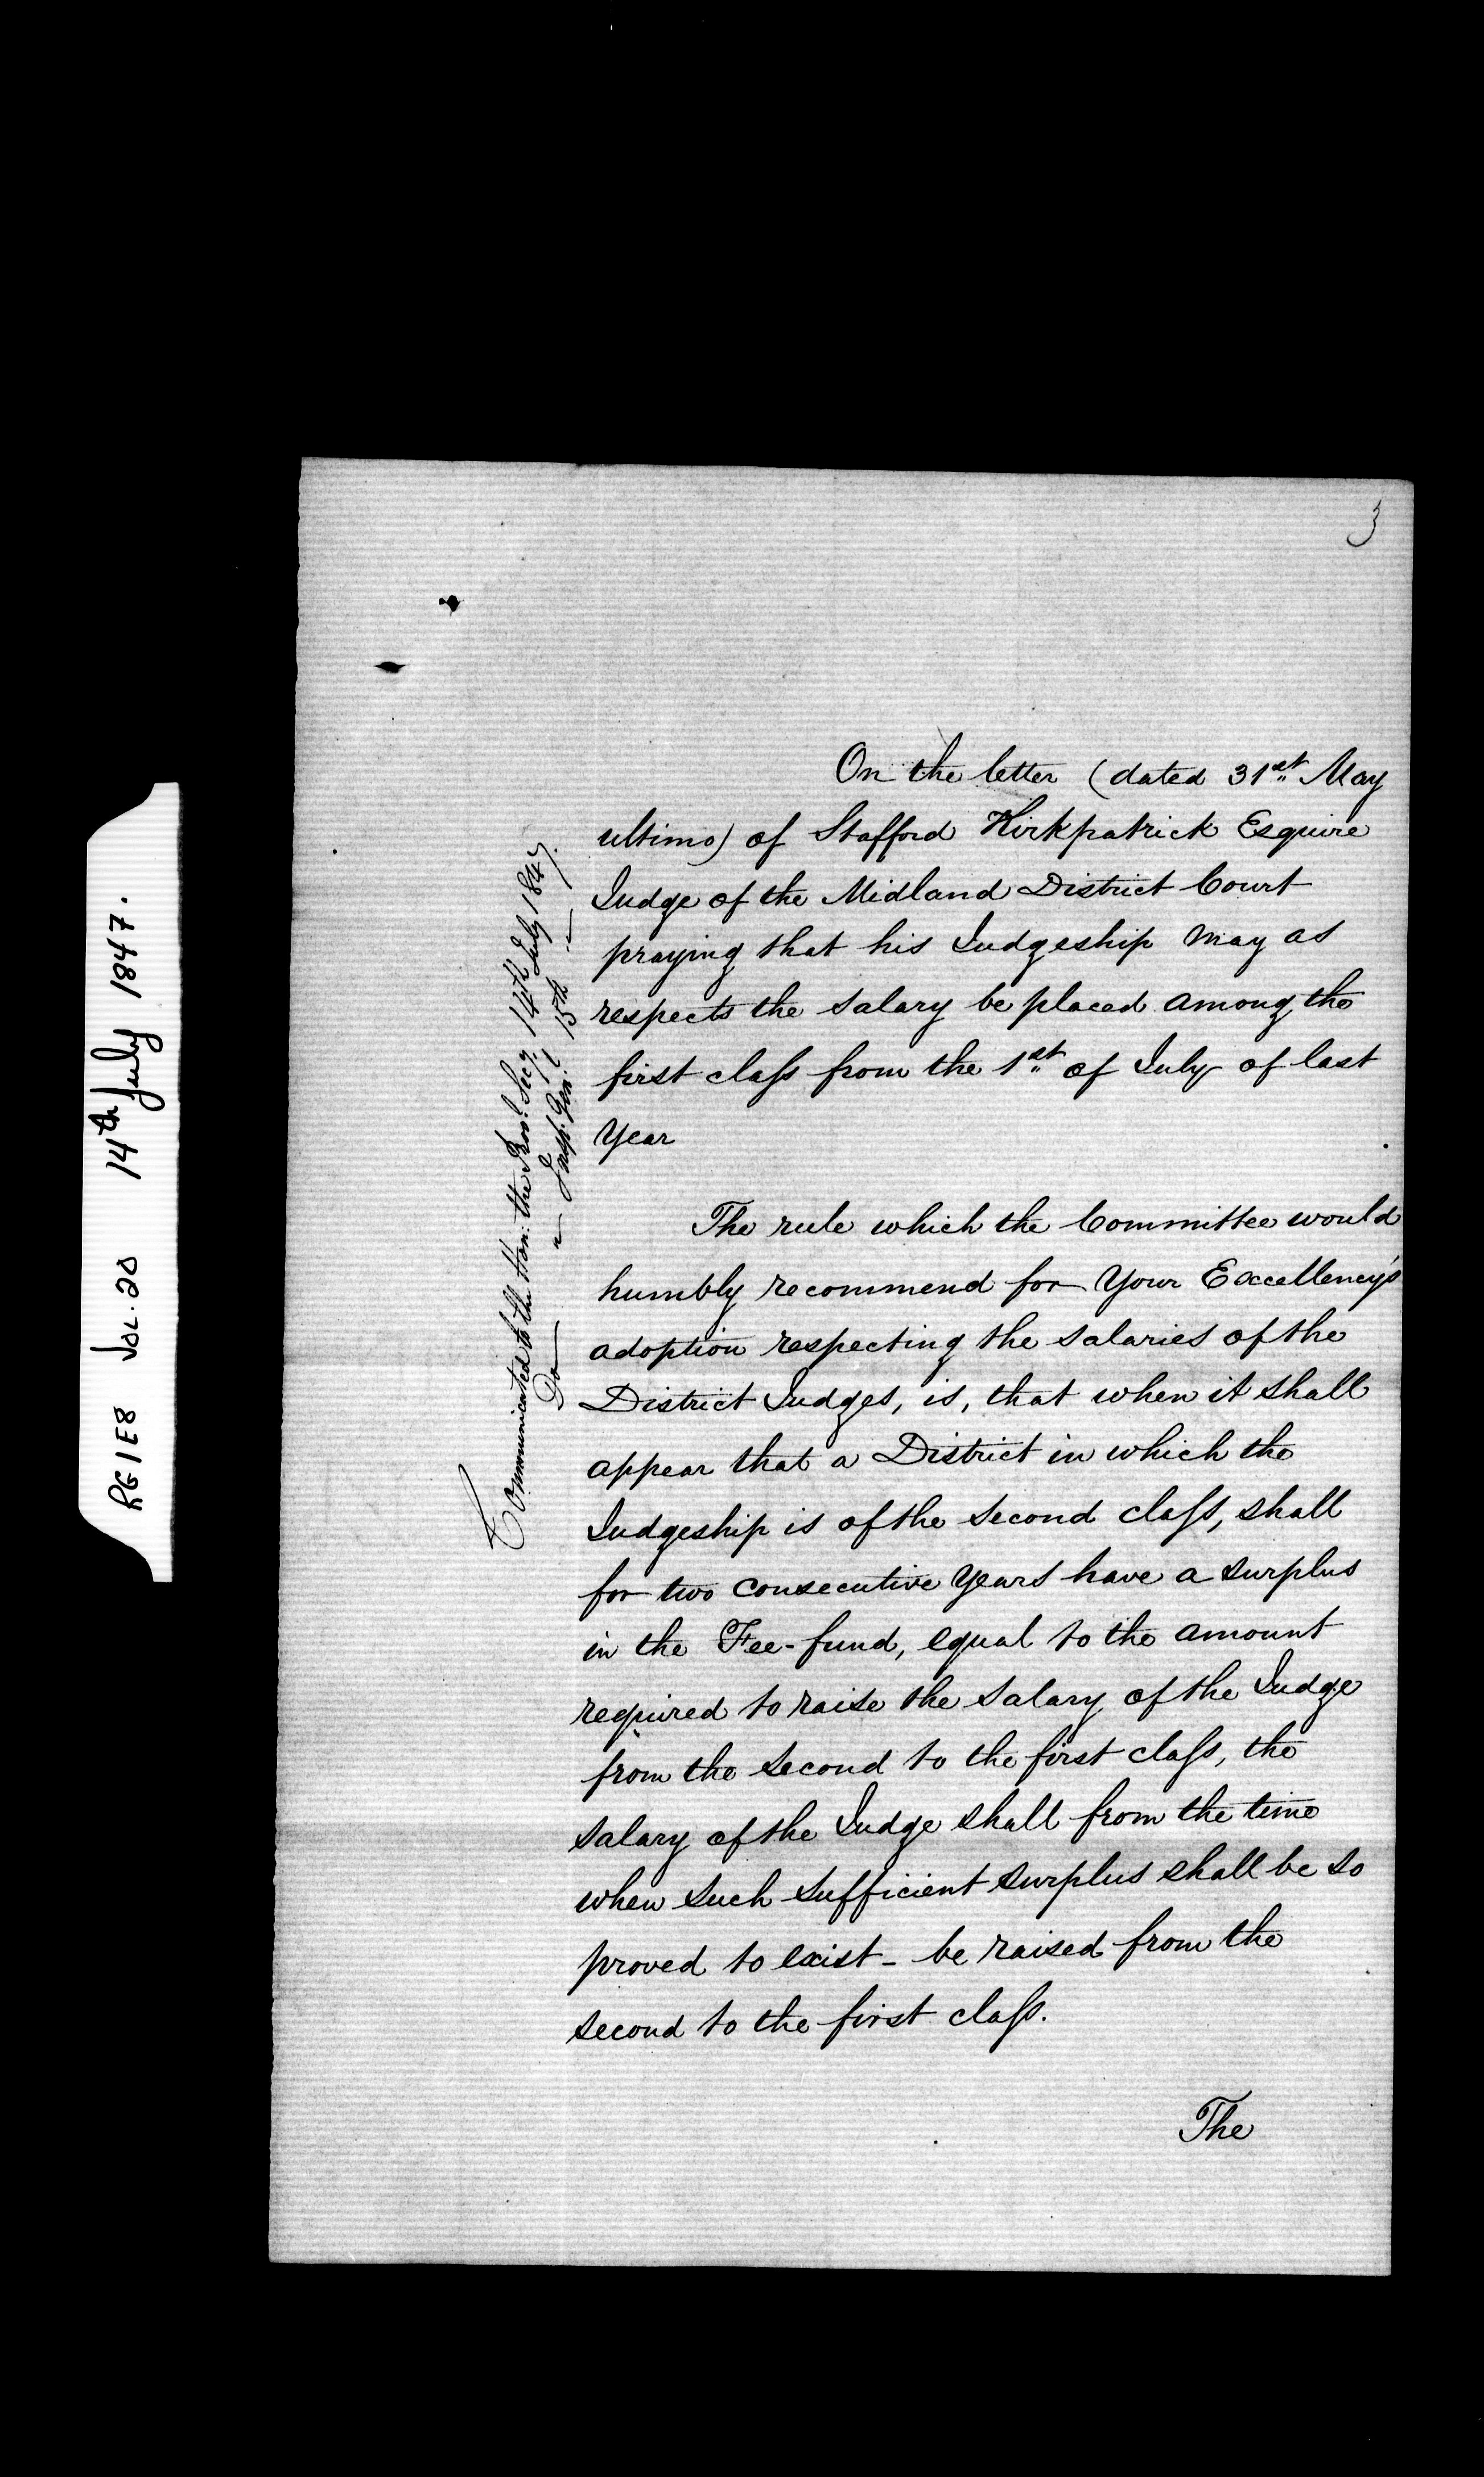 RG1E8 Vol. 20 14th July 1847.
3
Communicated to the Hon: the Prov.l Sec.y 14th July 1847.
Do " Insp. Gen.l 15th "
On the letter (dated 31st May
ultimo) of Stafford Kirkpatrick Esquire
Judge of the Midland District Court
praying that his Judgeship may as
respects the salary be placed among the
first claſs from the 1st of July of last
Year
The rule which the Committee would
humbly recommend for Your Excellency's
adoption respecting the salaries of the
District Judges, is, that when it shall
appear that a District in which the
Judgeship is of the second claſs, shall
for two consecutive Years have a surplus
in the Fee-fund, equal to the amount
required to raise the salary of the Judge
from the second to the first claſs, the
salary of the Judge shall from the time
when such sufficient surplus shall be so
proved to exist - be raised from the
second to the first claſs.
The